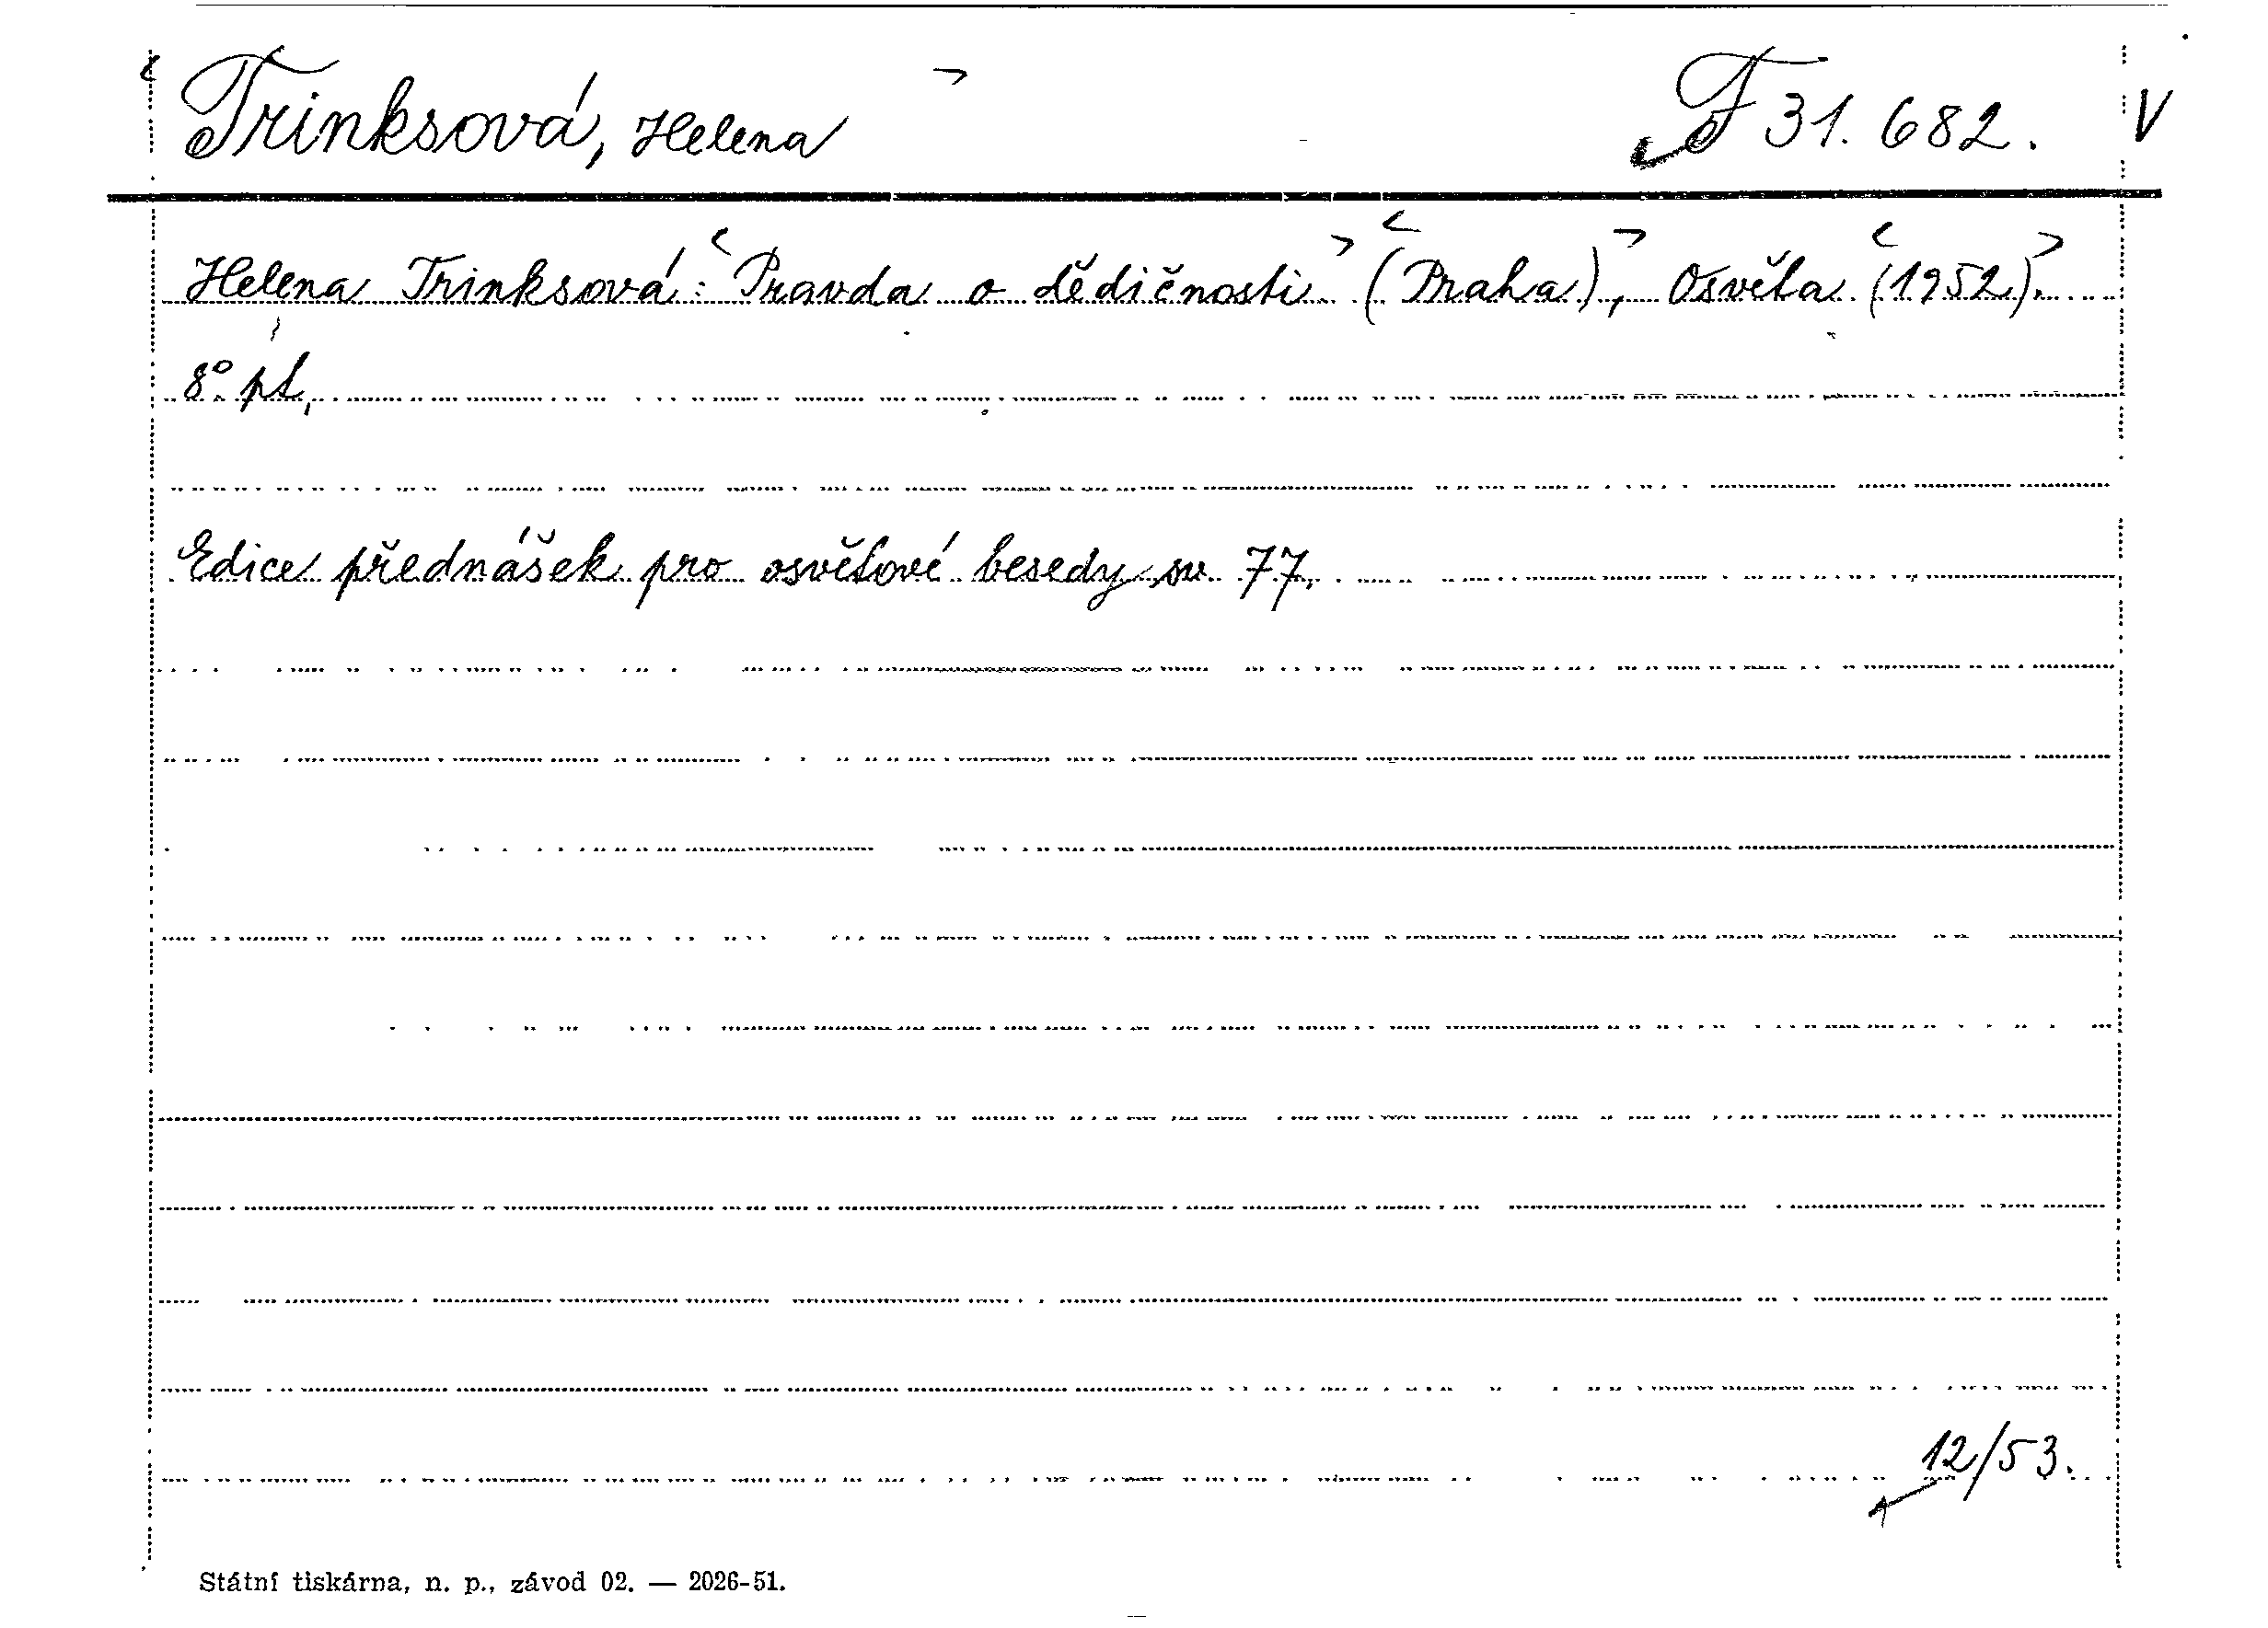 Trinksová, Helena F 31.682. V
Helena Trinksová: Pravda o dědičnosti (Praha), Osvěta (1952).
8° pt,
Edice přednášek pro osvětové besedy sv. 77.
12/53.
Státní tiskárna, n. p., závod 02. — 2026-51.